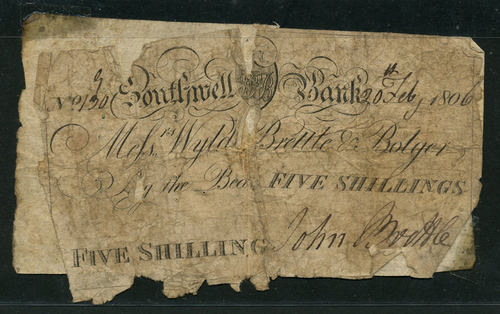 No. 130 Southwell Bank 20th Feby. 1806
Messrs. Wylds Brettle & Bolger
Pay the Bea FIVE SHILLINGS
FIVE SHILLING John Brettle